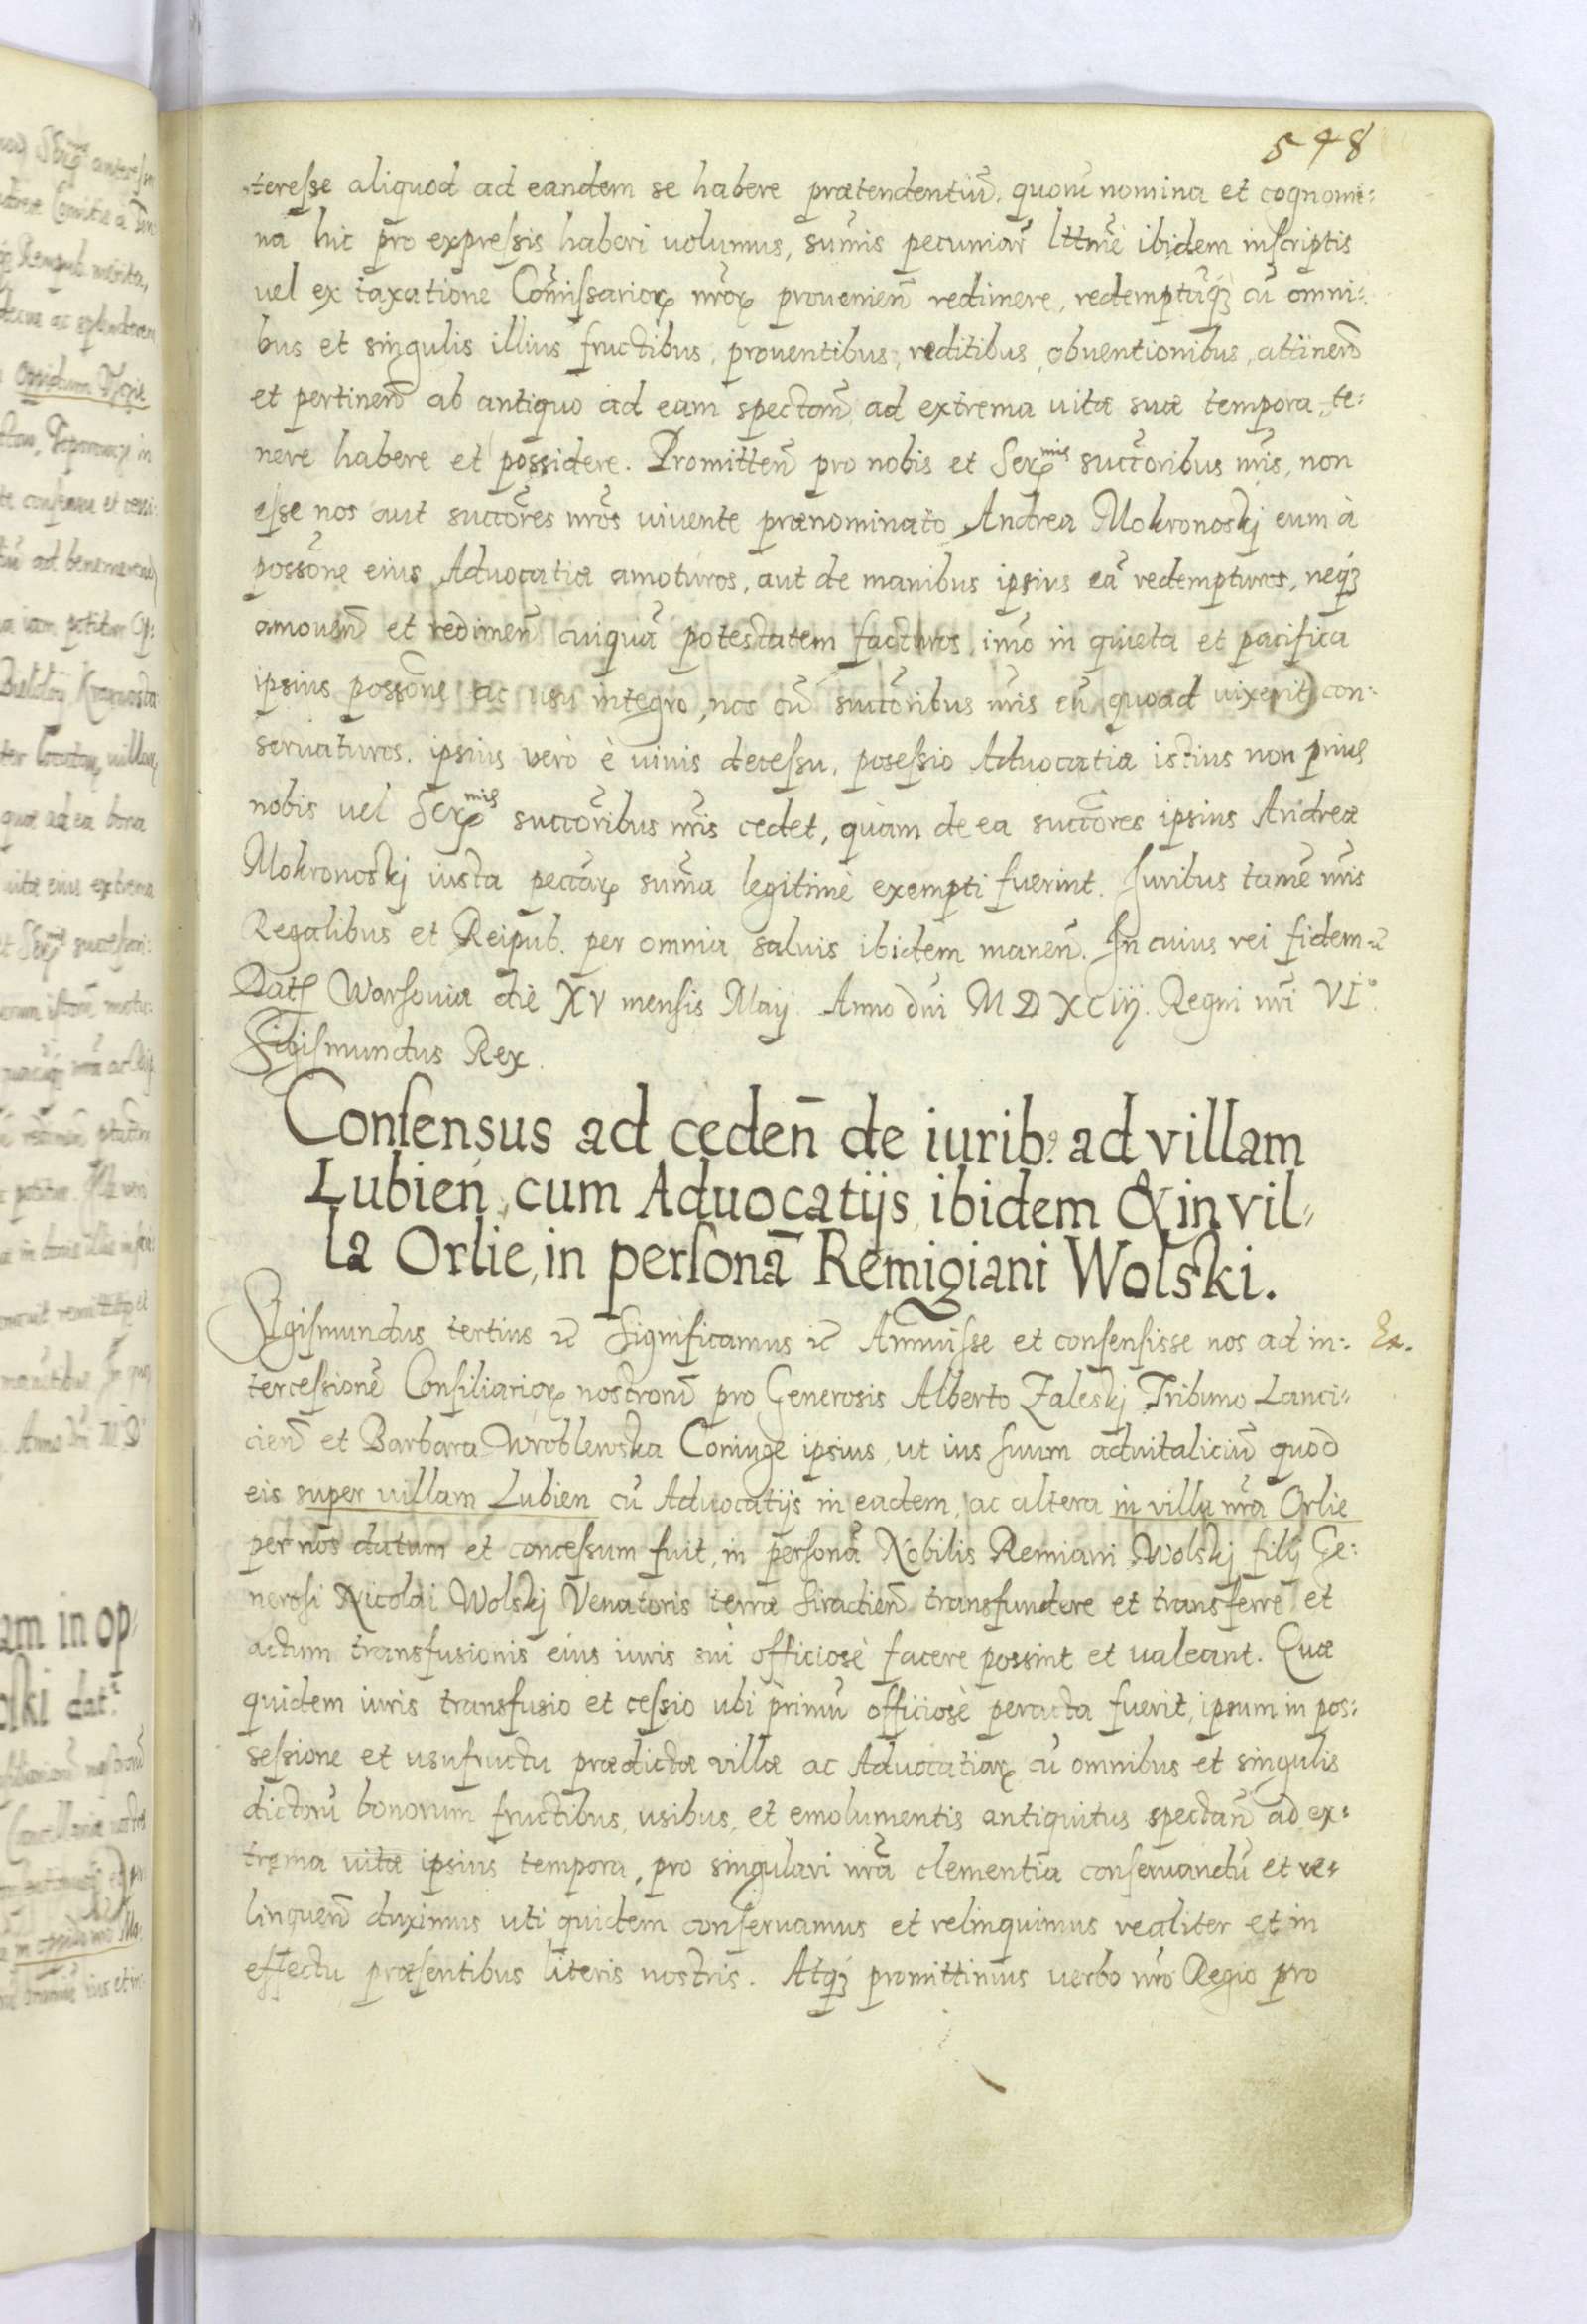 548
teresse aliquod ad eandem se habere prætendentiũ. quorũ nomina et cognomi:
na hic pro expressis haberi uolumus, sum̃is pecuniar̃ lttm̃è ibidem inscriptis
uel ex taxatione Com̃issarioꝝ nr̃oꝝ prouenien̄ redimere, redemptũqꝫ cũ omni:
bus et singulis illius fructibus, prouentibus, reditibus, obuentionibus, attinen̄
et pertinen̄ ab antiquo ad eam spectan̄ ad extrema uitæ suæ tempora, te:
nere habere et possidere. Promitten̄ pro nobis et Serꝝmis succ̃oribus nr̃is, non
esse nos aut succ̃ores nr̃os uiuente prænominato Andrea Mokronoskj eum à
poss̃one eius Aduocatiæ amoturos, aut de manibus ipsius eã redempturos, neqꝫ
amouen̄ et redimen̄ cuiquã potestatem facturos, imo in quieta et pacifica
ipsius poss̃one ac usu integro, nos cũ succ̃oribus nr̃is eũ quoad uixerit) con:
seruaturos. ipsius verò è uiuis decessu, posessio Aduocatiæ istius non prius
nobis uel Serꝝmis succ̃oribus nr̃is cedet, quàm de ea succ̃ores ipsius Andreæ
Mokronoskj iusta pecc̃aꝝ sum̃a legitimè exempti fuerint. Juribus tamẽ nr̃is
Regalibus et Reipub. per omnia saluis ibidem manen̄. In cuius rei fidem ꝛc̃
Datꝭ Warsouiæ die XV mensis Maij. Anno dñi M D XC iij. Regni nr̃i VIo.
Sigismundus Rex.
Consensus ad ceden̄ de iurib9. ad villam
Lubień, cum Aduocatijs ibidem & in vil-
la Orlie, in personā Remigiani Wolski.
Sigismundus tertius ꝛc̃ Significamus ꝛc̃ Annuisse et consensisse nos ad in:
Ex.
tercessionẽ Consiliarioꝝ nostrorũ pro Generosis Alberto Zaleskj Tribuno Lanci-
cien̄ et Barbara Wroblewska Coniuge ipsius, ut ius suum aduitaliciũ quod
eis super uillam Lubien cũ Aduocatijs in eadem, ac altera in villa nr̃a Orlie
per nos datum et concessum fuit, in personã Nobilis Remiani Wolskj filij Ge:
nerosi Nicolai Wolskj Venatoris terræ Siradien̄ transfundere et transferre et
actum transfusionis eius iuris sui officiosè facere possint et ualeant. Quæ
quidem iuris transfusio et cessio ubi primũ officiosè peracta fuerit, ipsum in pos:
sessione et usufructu prædictæ villæ ac Aduocatiaꝝ cũ omnibus et singulis
dictorũ bonorum fructibus, usibus, et emolumentis antiquitus spectan̄ ad ex:
trema uitæ ipsius tempora, pro singulari nr̃a clementia conseruandũ et re-
linquen̄ duximus uti quidem conseruamus et relinquimus realiter et in
effectu præsentibus literis nostris. Atqꝫ promittimus uerbo nr̃o Regio pro